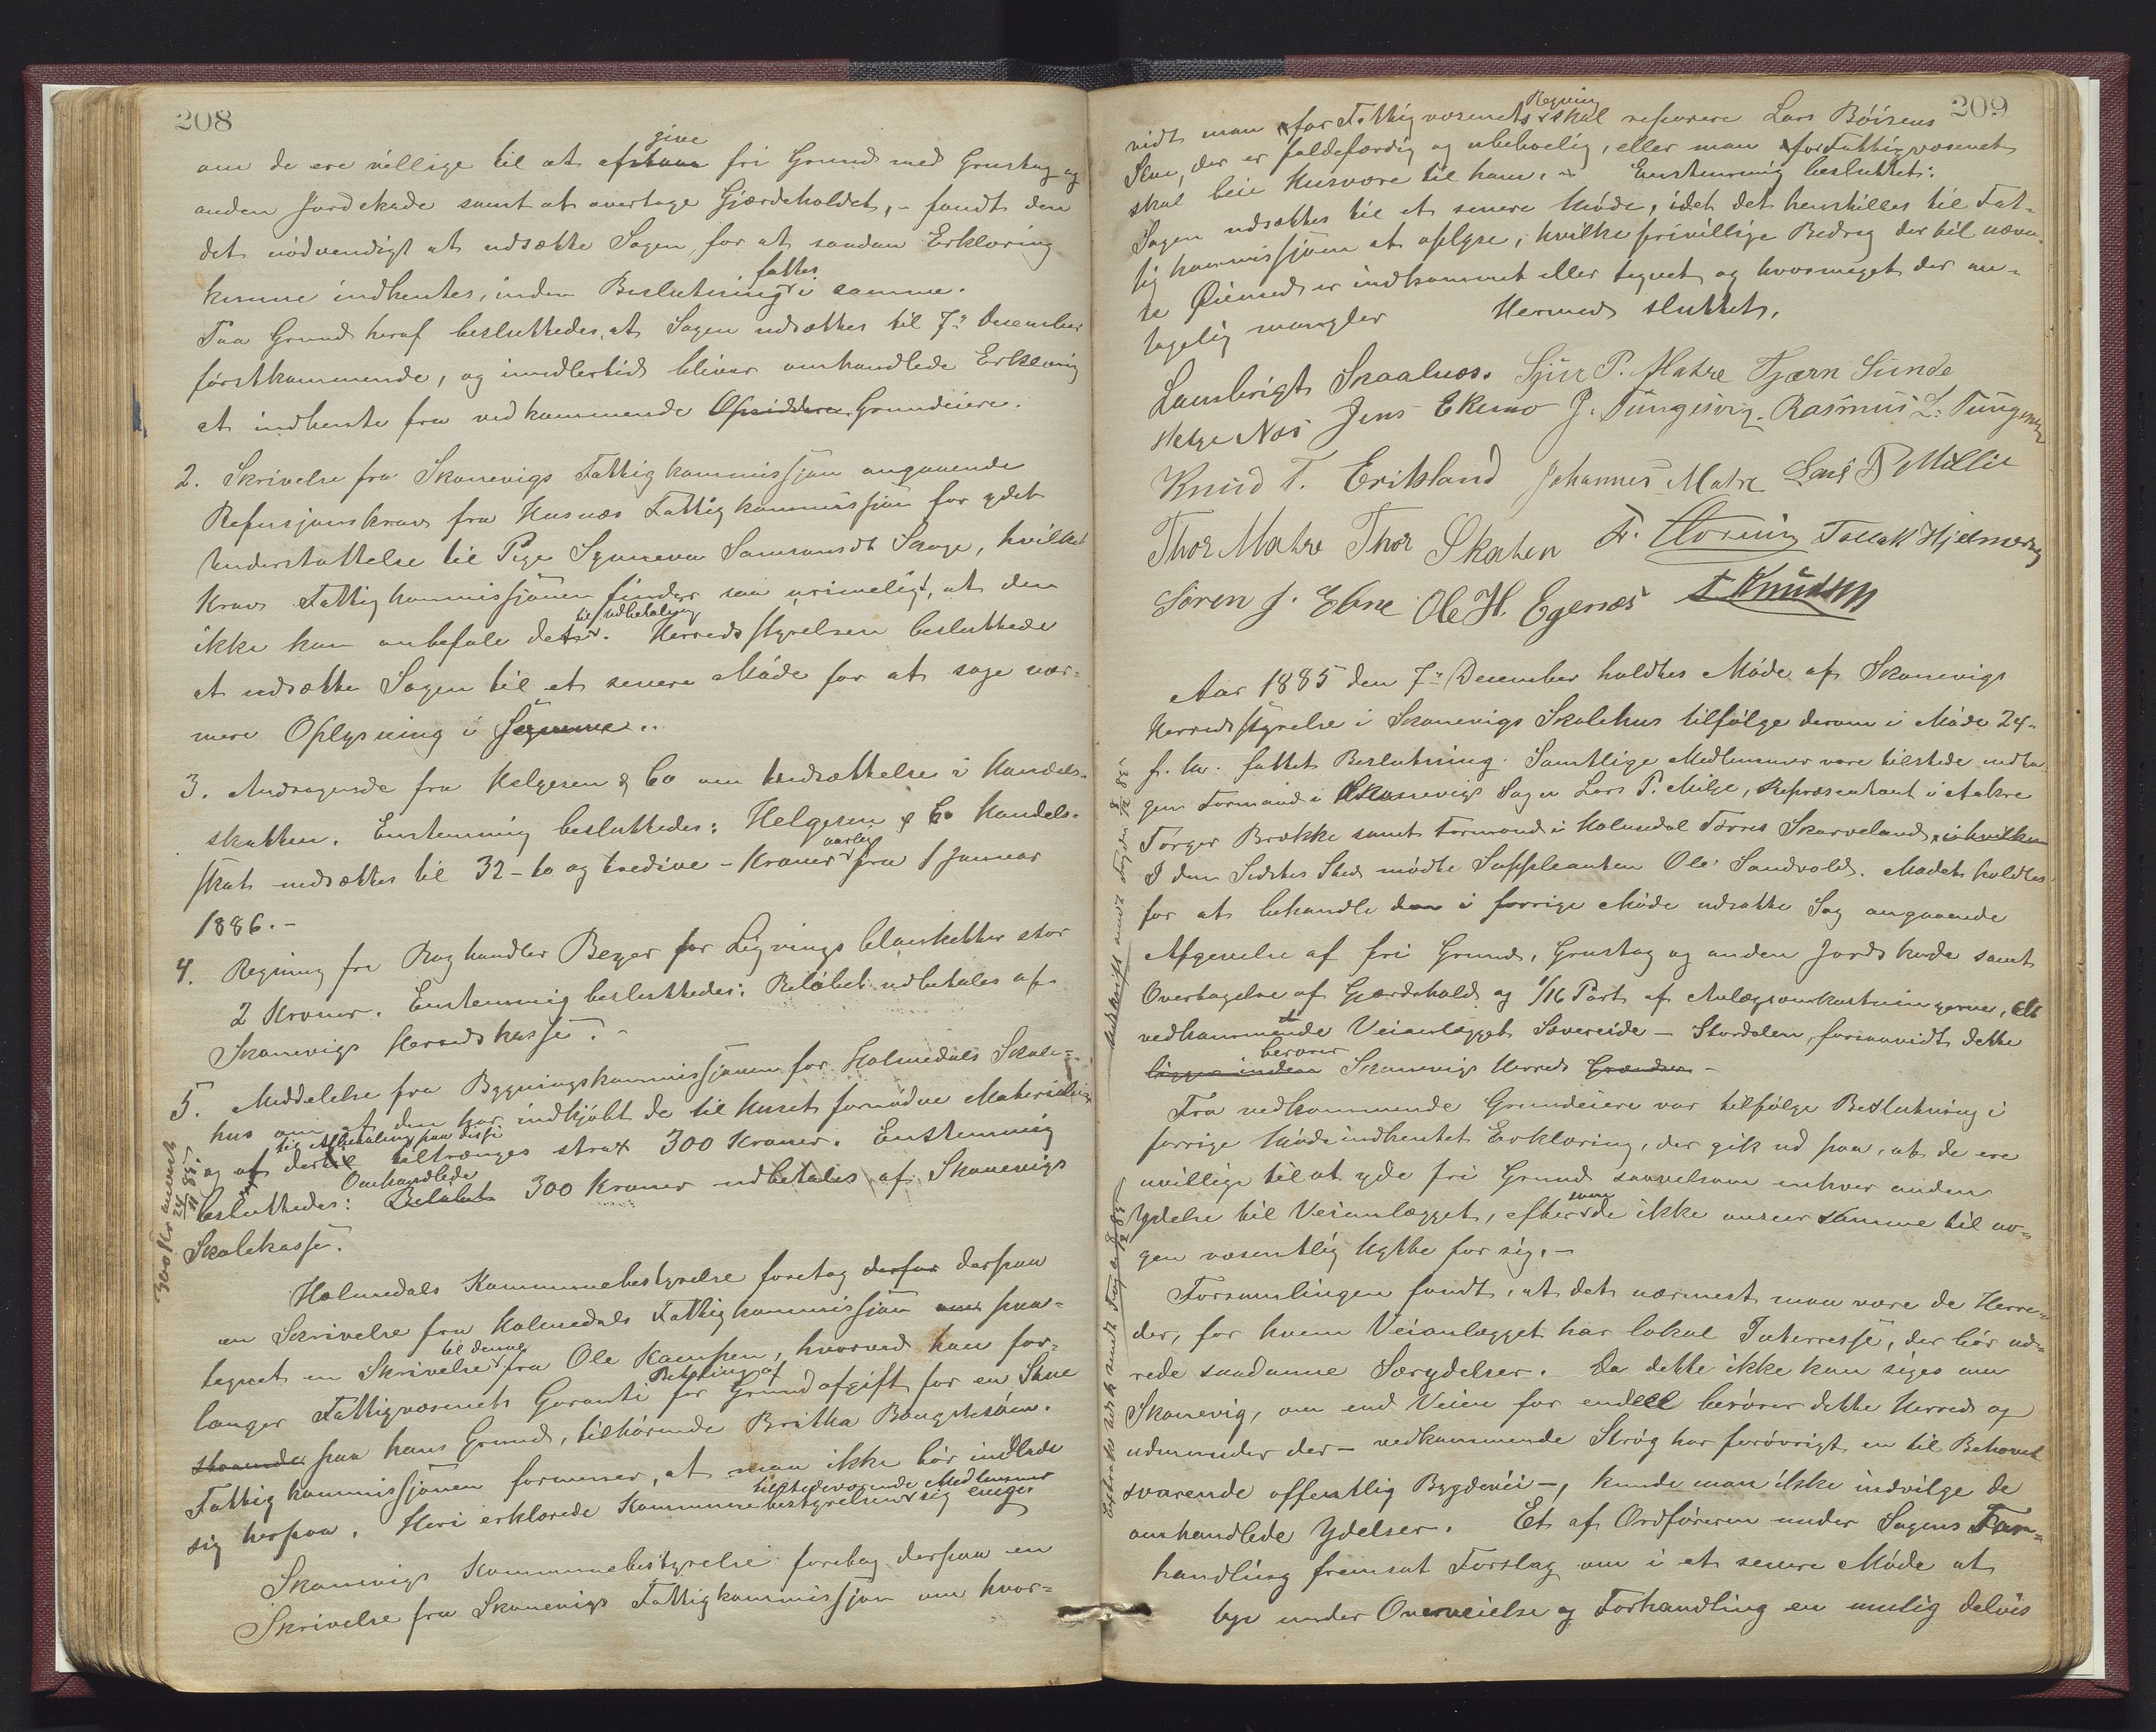 208
om de ere villige til at afstaae give fri Grund med Grustag og
anden Jordskade samt at overtage Gjærdeholdet, - fandt den
det nödvendigt at udsætte Sagen for at saadan Erklæring
kunne indhentes, inden Beslutning fattes i samme.
Paa Grund heraf besluttedes, at Sagen udsættes til 7de December
förstkommende, og imidlertid bliver omhandlede Erklæring
at indhente fra vedkommende Opsiddere Grundeiere.
2. Skrivelse fra Skonevigs Fattigkommissjon angaaende
Refusjonskrav fra Husnæs Fattigkommissjon for ydet
Understøttelse til Pige Synneva Samsonsdt Skage, hvilket
Krav Fattigkommissjonen finder saa urimeligt, at den
ikke kan anbefale det til Udbetaling. Herredsstyrelsen besluttede
at udsætte Sagen til et senere Möde for at søge nær-
mere Oplysning i Samme.
3. Andragende fra Helgesen & Co om Nedsættelse i Handels-
skatten. Enstemmig besluttedes: Helgesen & Co Handels-
skat nedsættes til 32 - to og tredive - Kroner aarlig fra 1 Januar
1886. -
4. Regning fra Boghandler Beyer for Ligningsblanketter stor
2 Kroner. Enstemmig besluttedes: Belöbet udbetales af
Skonevigs Herredskasse. -
5. Meddelelse fra Bygningskommissjonen for Holmedals Skole-
hus om, at den har indkjöbt de til Huset fornödne Materialier
og at dertil til Afbetaling paa disse tiltrænges strax 300 Kroner. Enstemmig
besluttedes: Beløbet Omhandlede 300 Kroner udbetales af Skonevigs
Skolekasse.
300 Kr anvist 24/11 85.
Holmedals Kommunebestyrelse foretog derfor derpaa
en Skrivelse fra Holmedals Fattigkommissjon om paa-
tegnet en Skrivelse til denne fra Ole Kampen, hvorved han for-
langer Fattigvæsenets Garanti for Betaling af Grundafgift for en Stue
staaende paa hans Grund, tilhørende Britha Bongshiöen.
Fattigkommissjonen formener, at man ikke bör indlade
sig herpaa. Heri erklærede Kommunebestyrelsens tilstedeværende Medlemmer sig enige
Skonevigs Kommunebestyrelse foretog derpaa en
Skrivelse fra Skonevigs Fattigkommissjon om hvor-
209
vidt man for Fattigvæsenets Regning skal reparere Lars Böisens
Stue, der er faldefærdig og ubeboelig, eller man for Fattigvæsenet
skal leie Husvære til ham. - Enstemmig besluttet:
Sagen udsættes til et senere Möde, idet det henstilles til Fat-
tigkommissjonen at oplyse, hvilke frivillige Bidrag der til nævn-
te Öiemed er indkommet eller tegnet og hvormeget der an-
tagelig mangler Hermed sluttet.
Lambrigt Skaalnæs. Sjur P. Matre Tjærn Sunde
Helge Næs Jens Ekemo J. Tungesvig. Rasmus L: Tungesvig
Knud T. Eriksland Johannes Matre Lars P Millie
Thor Matre Thor Skaten F. Horning Tollak Hjelmervig
Sören J. Ebne Ole H. Egenæs S Knudsen
Aar 1885 den 7de December holdtes Möde af Skonevigs
Herredsstyrelse i Skonevigs Skolehus tilfölge derom i Möde 24-
f. M. fattet Beslutning. Samtlige Medlemmer vare tilstede undta-
gen Formand i Skonevigs Sogn Lars P. Milje, Repræsentant i Aakre
Torger Brække samt Formand i Holmedal Torres Skarveland, i hvilken
I den Sidstes Sted mödte Suppleanten Ole Sandvold. Mödet holdtes
for at behandle den i forrige Möde udsatte Sag angaaende
Afgivelse af fri Grund, Grustag og anden Jordskade samt
Overtagelse af Gjærdehold og 1/16 Part af Anlægsomkostningerne, Alt
vedkommende Veianlægget Sævereide - Stordalen, forsaavidt dette
ligger inden berører Skonevigs Herreds Grændser -
Fra vedkommende Grundeiere var tilfölge Beslutning i
forrige Möde indhentet Erklæring, der gik ud paa, at de ere
uvillige til at yde fri Grund saavelsom enhver anden
Ydelse til Veianlægget, eftersom de ikke anseer samme til no-
gen væsentlig Nytte for sig. -
Forsamlingen fandt, at det nærmest maa være de Herre-
der, for hvem Veianlægget har lokal Interresse, der bör ud-
rede saadanne Særydelser. Da dette ikke kan siges om
Skonevig, om end Veien for endeel berörer dette Herred og
udmunder der - vedkommende Ströг har forövrigt en til Behovet
svarende offentlig Bygdevei -, kunde man ikke indvilge de
omhandlede Ydelser. Et af Ordföreren under Sagens For-
handling fremsat Forslag om i et senere Möde at
tage under Overveielse og Forhandling en mulig delvis
Udskrift sendt Fogden 8/12 85
Extrakt udsk sendt Fogden 8/12 85